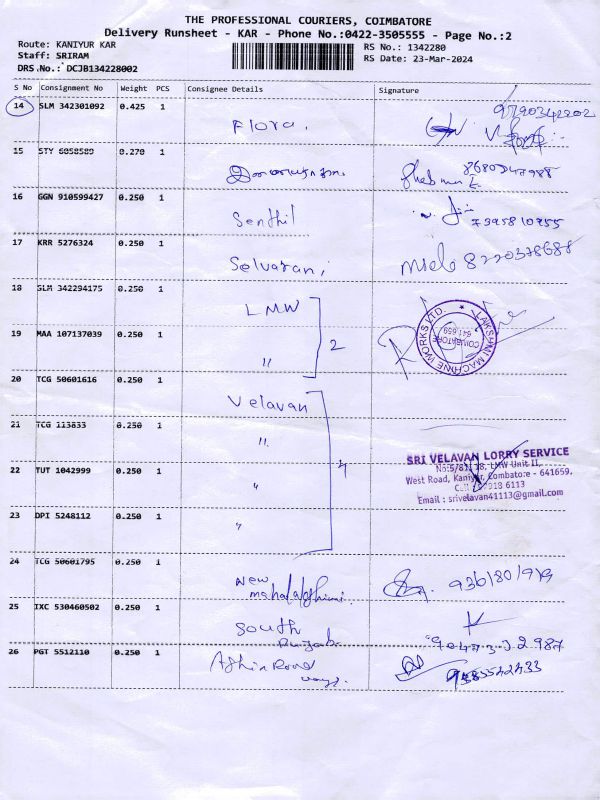 THE PROFESSIONAL COURIERS, COIMBATORE
Delivery Runsheet - KAR - Phone No.:0422-3505555 - Page No.:2
Route: KANIYUR KAR
RS No.: 1342280
Staff: SRIRAM
RS Date: 23-Mar-2024
DRS.No.: DCJB134228002
S No Consignment No Weight PCS Consignee Details Signature
14 SLM 342301092 0.425 1 Flora. 9790342202
15 STY 6058589 0.270 1
16 GGN 910599427 0.250 1 Senthil 7395810955
17 KRR 5276324 0.250 1 Selvarani 8220378688
18 SLM 342294175 0.250 1 LMW
LAKSHMI MACHINE WORKS LTD.
COIMBATORE
641 659
19 MAA 107137039 0.250 1 " 2
20 TCG 50601616 0.250 1 Velavan
21 TCG 113833 0.250 1 "
SRI VELAVAN LORRY SERVICE
22 TUT 1042999 0.250 1 " 4
LMW Unit II,
West Road, Kaniyur, Combatore - 641659.
6113
Email : srivelavan41113@gmail.com
23 DPI 5248112 0.250 1 "
24 TCG 50601795 0.250 1 New
25 IXC 530460502 0.250 1 South
Punjab
26 PGT 5512110 0.250 1 Road